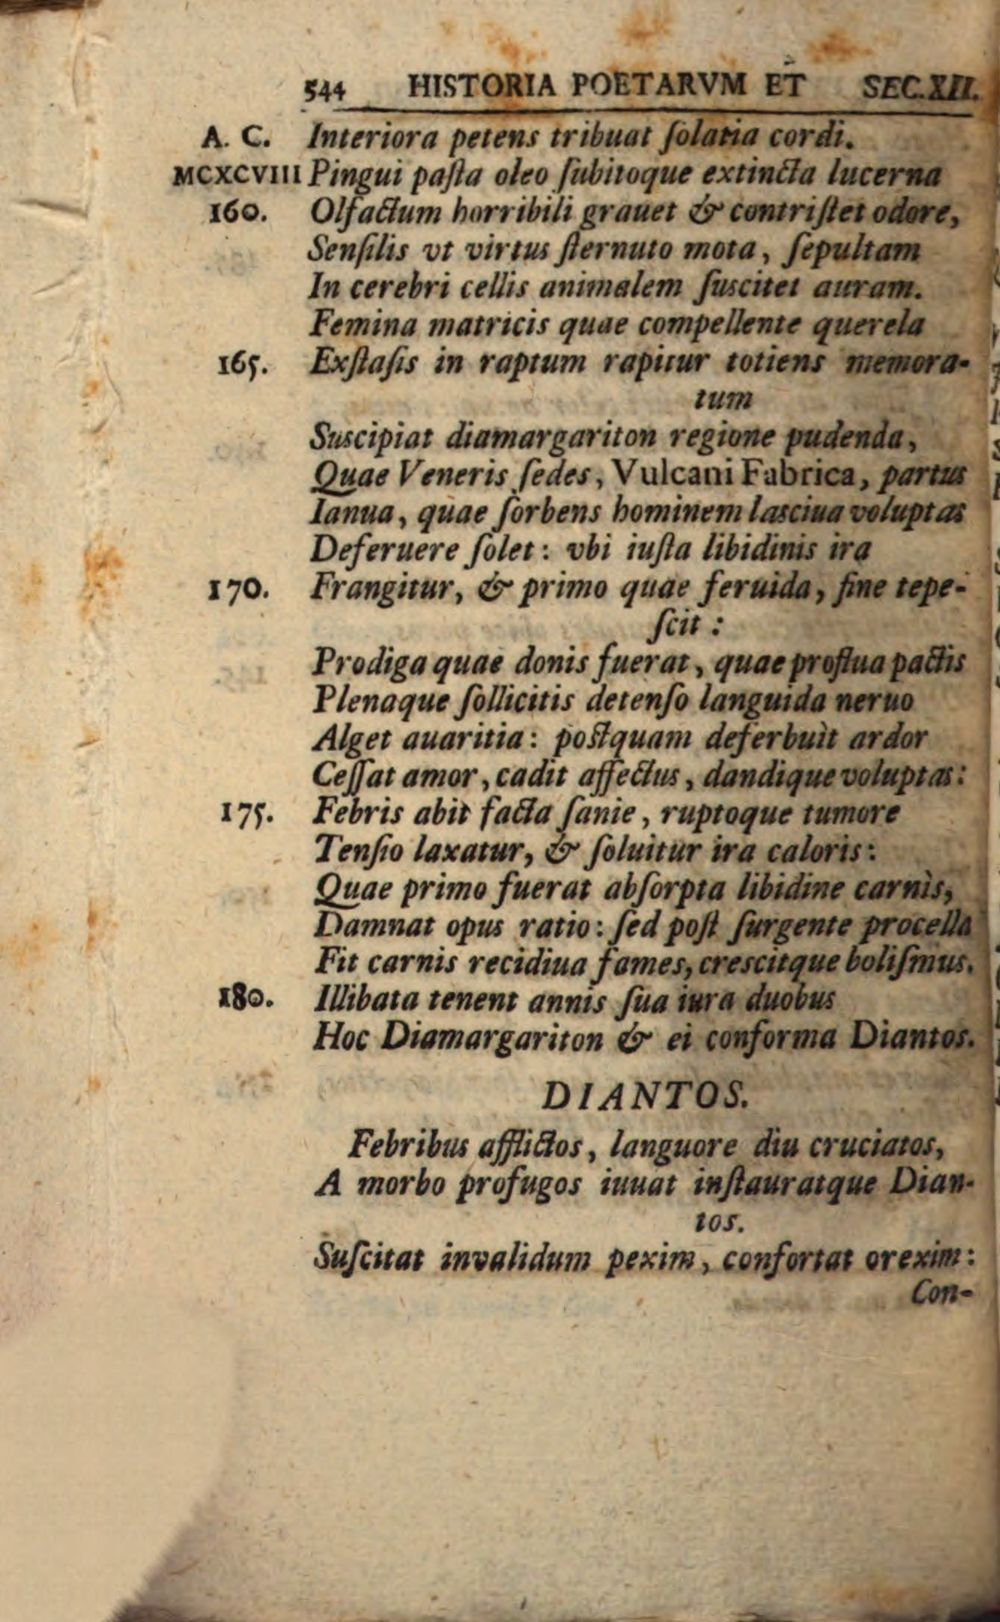 544 HISTORIA POETARVM ET SEC.XII.
A. C. Interiora petens tribuat ſolatia cordi.
MCXCVIII Pingui paſta oleo ſubitoque extincta lucerna
160. Olfactum horribili grauet & contriſtet odore,
Senſilis vt virtus ſternuto mota, ſepultam
In cerebri cellis animalem ſuscitet auram.
Femina matricis quae compellente querela
165. Exſtaſis in raptum rapitur totiens memora-
tum
Suscipiat diamargariton regione pudenda,
Quae Veneris ſedes, Vulcani Fabrica, partus
Ianua, quae ſorbens hominem lasciua voluptas
Deferuere ſolet: vbi iuſta libidinis ira
170. Frangitur, & primo quae feruida, fine tepe-
ſcit:
Prodiga quae donis fuerat, quae proflua pactis
Plenaque ſollicitis detenſo languida neruo
Alget auaritia: poſtquam deferbuìt ardor
Ceſſat amor, cadit affectus, dandique voluptas:
175. Febris abit facta ſanie, ruptoque tumore
Tenſio laxatur, & ſoluitur ira caloris:
Quae primo fuerat abſorpta libidine carnìs,
Damnat opus ratio: ſed poſt ſurgente procella
Fit carnis recidiua fames, crescitque boliſmus.
180. Illibata tenent annis ſua iura duobus
Hoc Diamargariton & ei conforma Diantos.
DIANTOS.
Febribus afflictos, languore diu cruciatos,
A morbo profugos iuuat inſtauratque Dian-
tos.
Suſcitat invalidum pexim, confortat orexim:
Con-